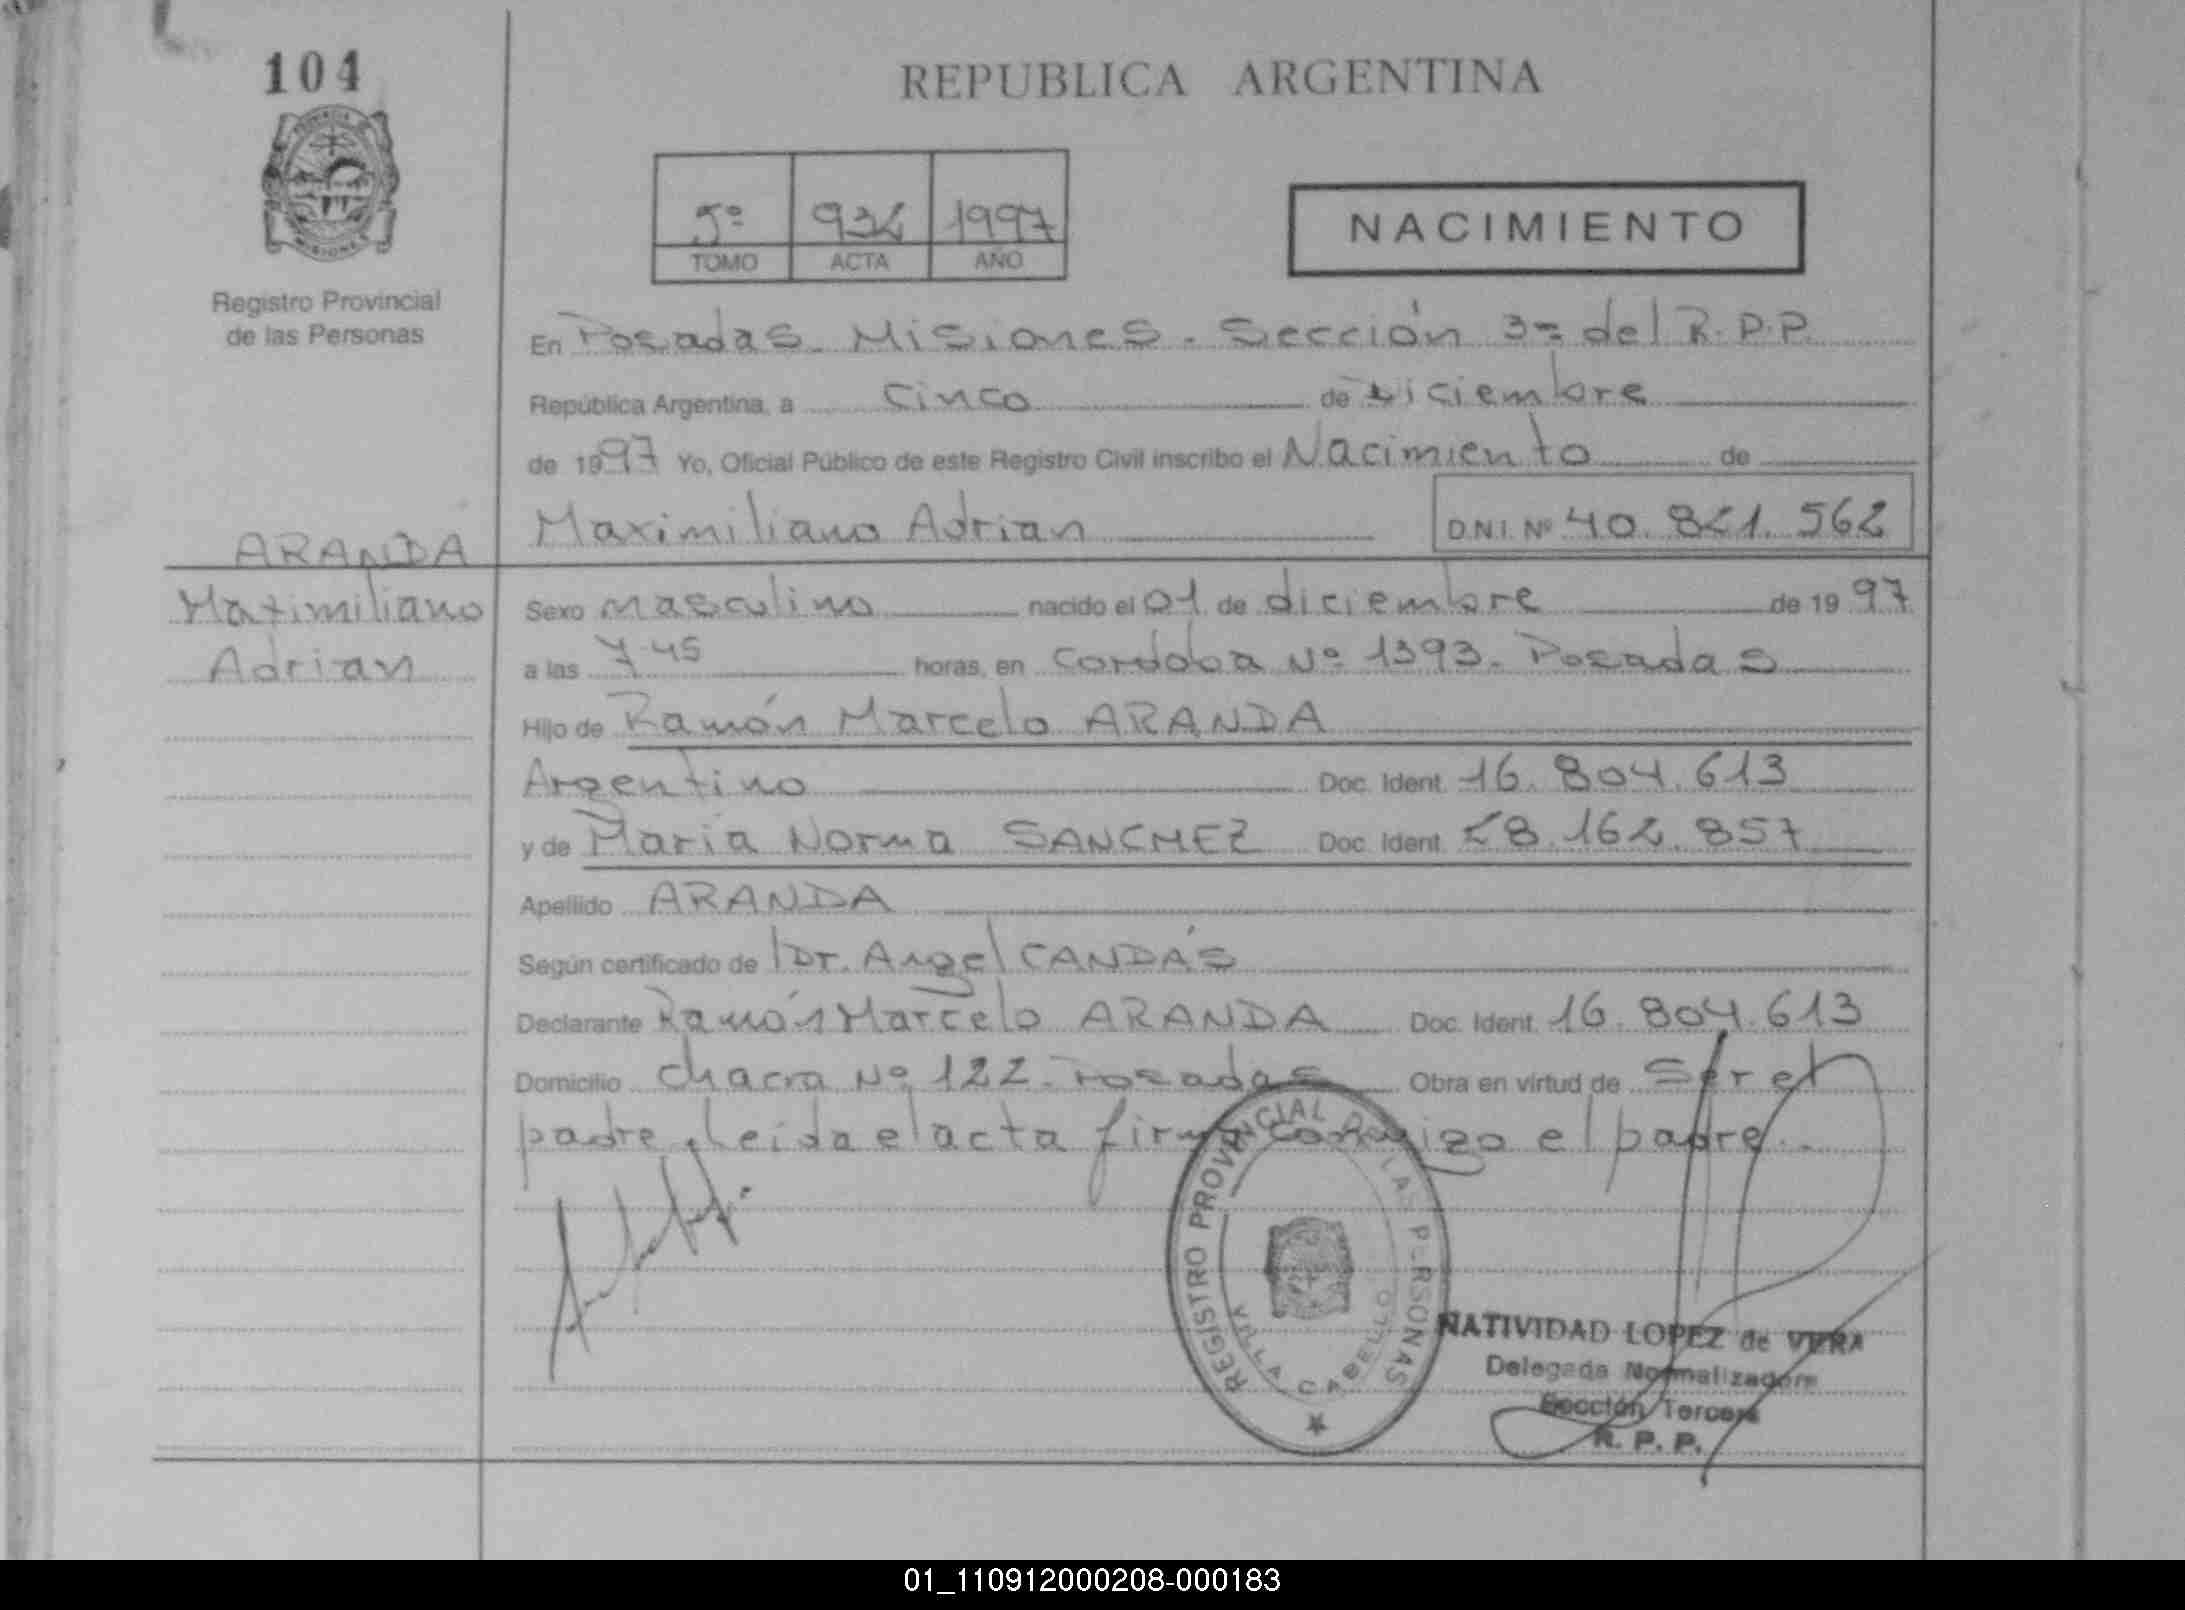 104
REPUBLICA ARGENTINA
PROVINCIA DE
MISIONES
Registro Provincial
de las Personas
5º 934 1997
TOMO ACTA AÑO
NACIMIENTO
En Posadas. Misiones. Sección 3ª del R.P.P.
República Argentina, a cinco de Diciembre
de 1997 Yo, Oficial Público de este Registro Civil inscribo el Nacimiento de
Maximiliano Adrian D.N.I. Nº 40.821.562
ARANDA
Maximiliano
Adrian
Sexo masculino nacido el 01 de diciembre de 1997
a las 7.45 horas, en Cordoba Nº 1393. Posadas
Hijo de Ramón Marcelo ARANDA
Argentino Doc. Ident. 16.804.613
y de Maria Norma SANCHEZ Doc. Ident. 28.162.857
Apellido ARANDA
Según certificado de Dr. Angel CANDÁS
Declarante Ramón Marcelo ARANDA Doc. Ident. 16.804.613
Domicilio Chacra Nº 122. Posadas Obra en virtud de Ser el
padre. Leida el acta firma conmigo el padre.
REGISTRO PROVINCIAL DE LAS PERSONAS
VILLA CABELLO
NATIVIDAD LOPEZ de VERA
Delegada Normalizadora
Sección Tercera
R. P. P.
01_110912000208-000183